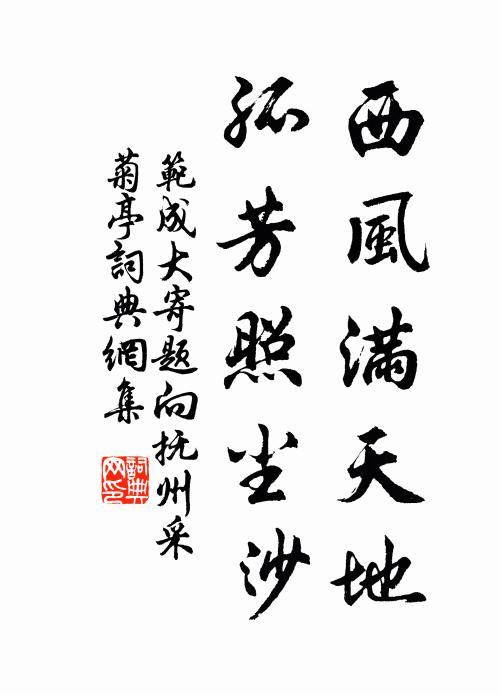 西風滿天地
孤芳照尘沙
範成大寄題向抚州采
菊亭詞典網集
詞典
网印